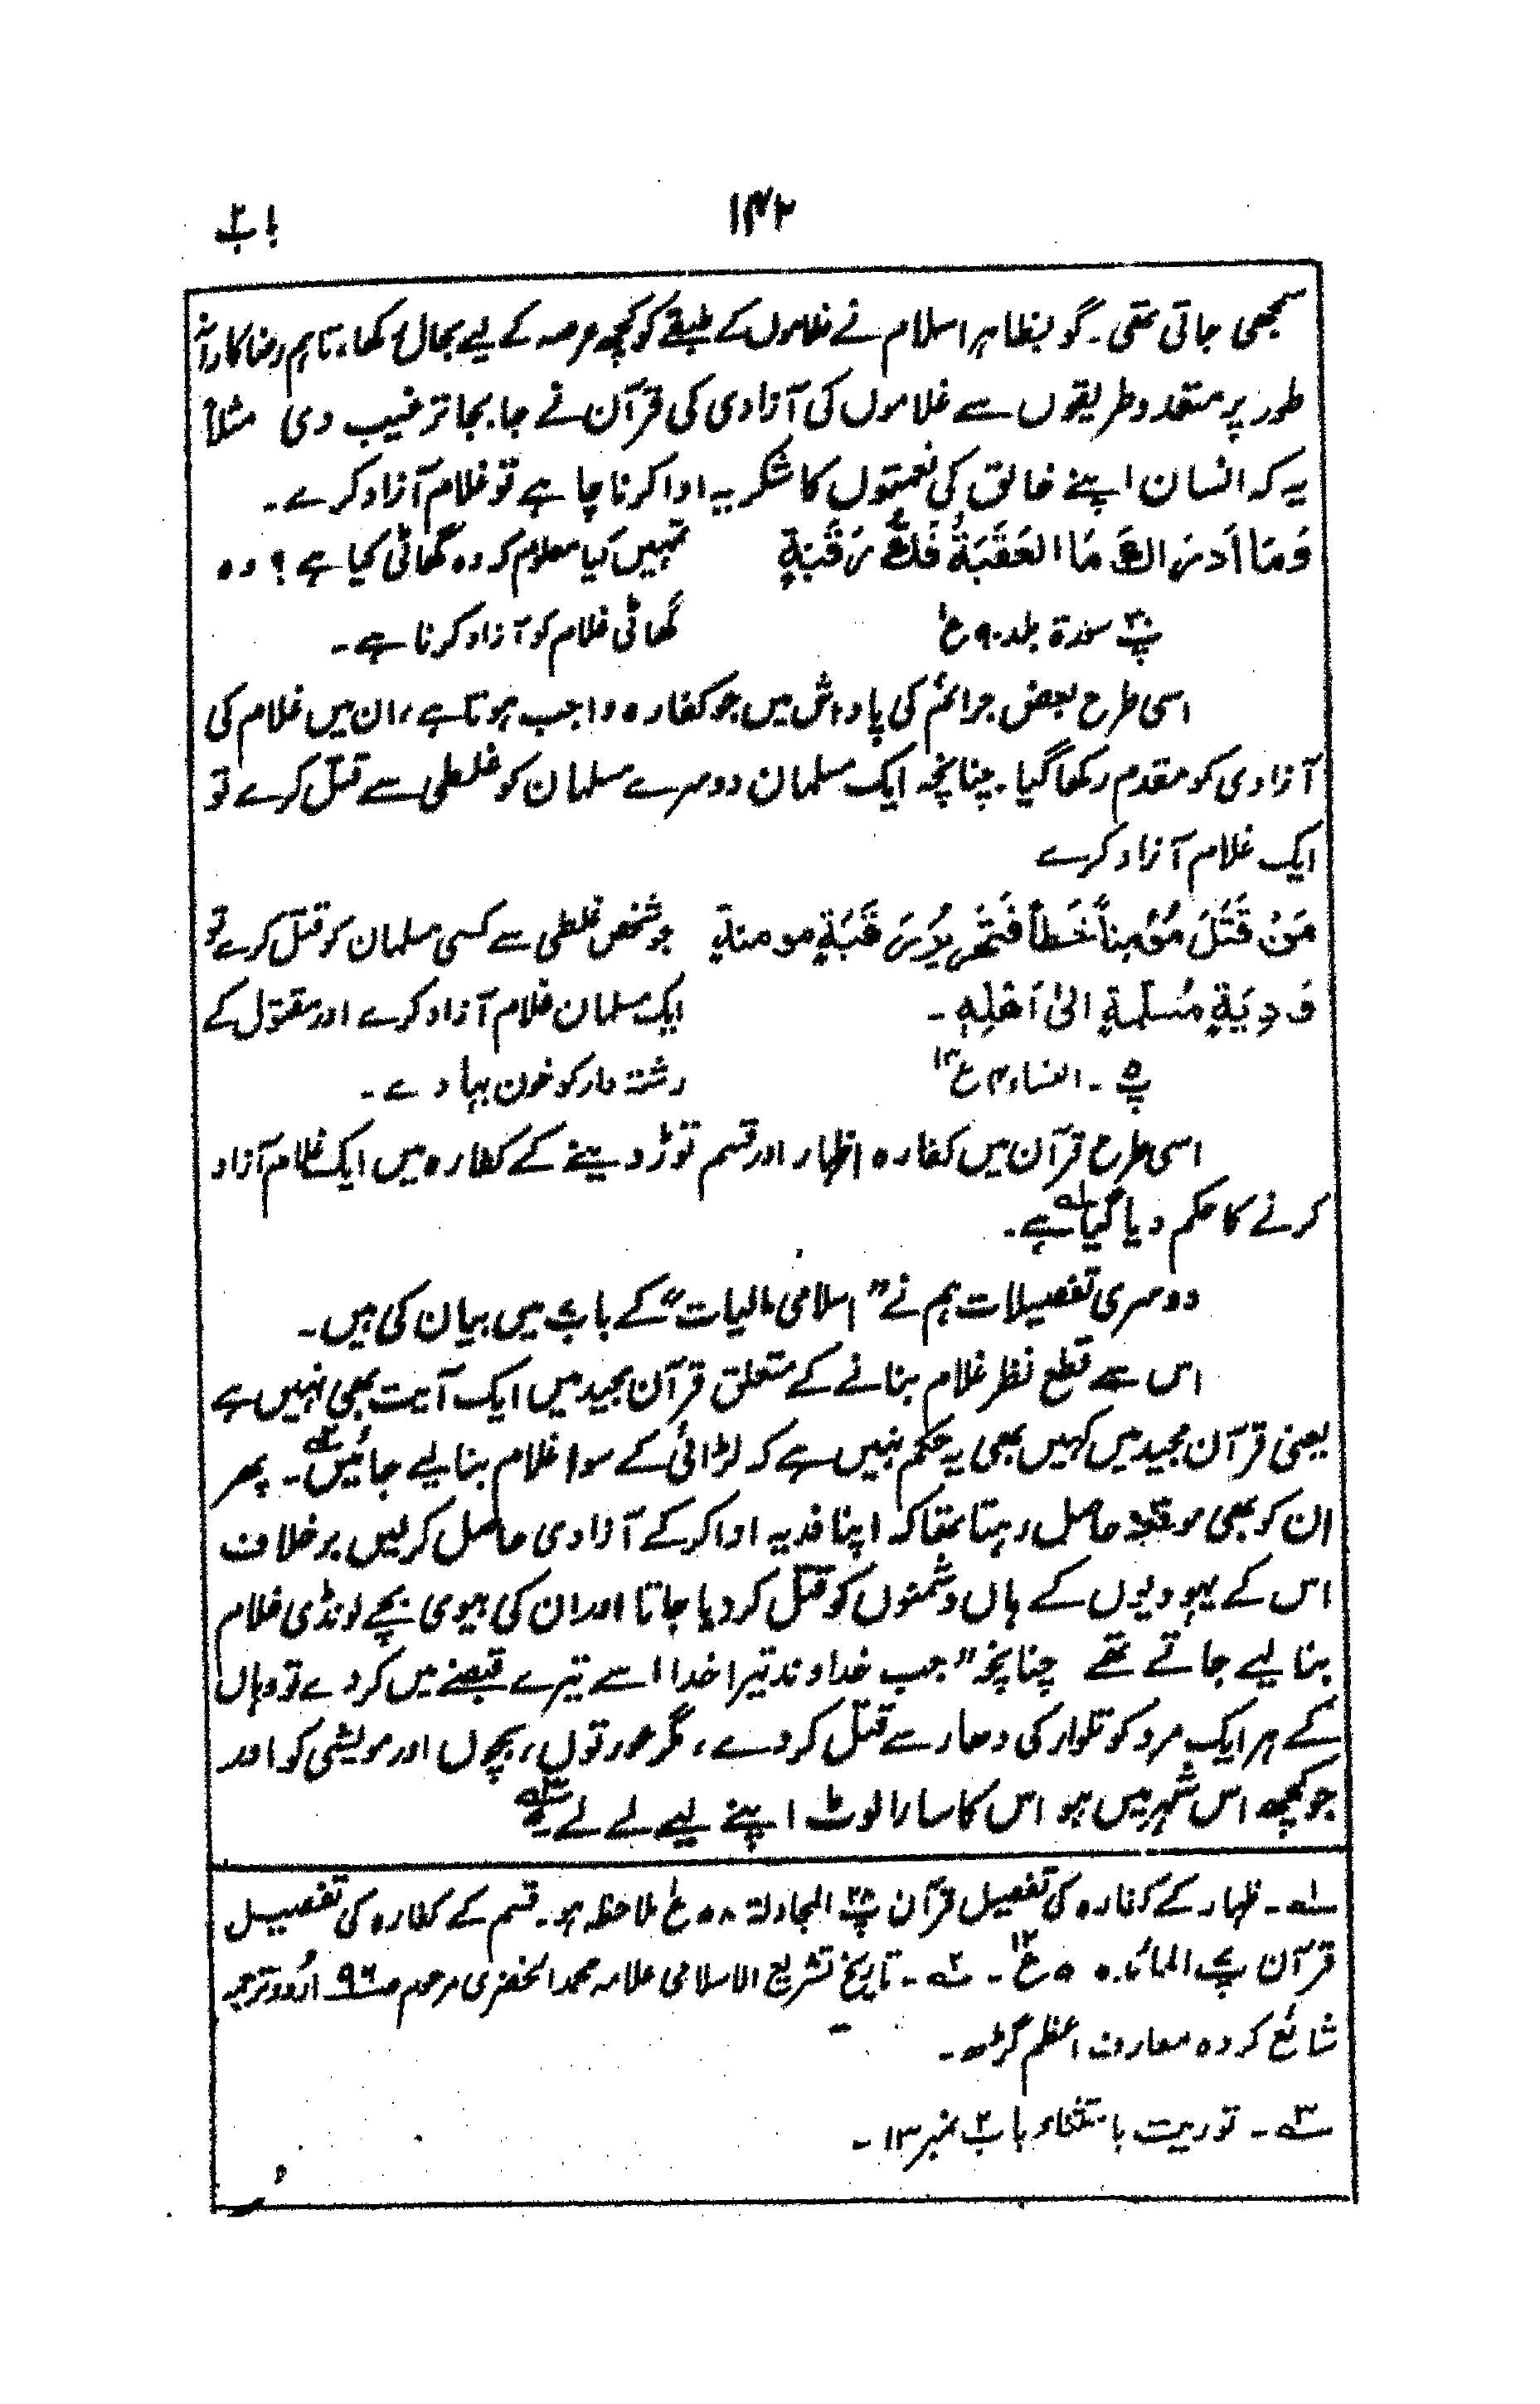 ۱۴۲
باب ۲
سمجھی جاتی تھی۔ گو بظاہر اسلام نے غلاموں کے طبقے کو کچھ عرصہ کے لیے بحال رکھا، تاہم رضا کارانہ
طور پر متعدد طریقوں سے غلاموں کی آزادی کی قرآن نے جا بجا ترغیب دی مثلاً
یہ کہ انسان اپنے خالق کی نعمتوں کا شکریہ ادا کرنا چاہے تو غلام آزاد کرے۔
وَمَا اَدۡرٰىكَ مَا الۡعَقَبَةُ فَكُّ رَقَبَةٍ
پ۳۰ سورۃ بلد ۹۰ ع۱
تمہیں کیا معلوم کہ وہ گھاٹی کیا ہے؟ وہ
گھاٹی غلام کو آزاد کرنا ہے۔
اسی طرح بعض جرائم کی پاداش میں جو کفارہ واجب ہوتا ہے، ان میں غلام کی
آزادی کو مقدم رکھا گیا۔ چنانچہ ایک مسلمان دوسرے مسلمان کو غلطی سے قتل کرے تو
ایک غلام آزاد کرے
مَنۡ قَتَلَ مُؤۡمِناً خَطَأً فَتَحۡرِيۡرُ رَقَبَةٍ مومنةٍ
وَ دِيَةٍ مُسلّمةٍ الىٰ اَهۡلِهٖ۔
پ۵۔ النساء ۴ ع۱۳
جو شخص غلطی سے کسی مسلمان کو قتل کرے تو
ایک مسلمان غلام آزاد کرے اور مقتول کے
رشتہ دار کو خون بہا دے۔
اسی طرح قرآن میں کفارہ اظہار اور قسم توڑ دینے کے کفارہ میں ایک غلام آزاد
کرنے کا حکم دیا گیا ہے۱؎۔
دوسری تفصیلات ہم نے "اسلامی مالیات" کے باب میں بیان کی ہیں۔
اس سے قطع نظر غلام بنانے کے متعلق قرآن مجید میں ایک آیت بھی نہیں ہے
یعنی قرآن مجید میں کہیں بھی یہ حکم نہیں ہے کہ لڑائی کے سوا غلام بنا لیے جائیں۲؎۔ پھر
ان کو بھی موقع حاصل رہتا تھا کہ اپنا فدیہ ادا کر کے آزادی حاصل کرلیں برخلاف
اس کے یہودیوں کے ہاں دشمنوں کو قتل کر دیا جاتا اور ان کی بیوی بچے لونڈی غلام
بنا لیے جاتے تھے چنانچہ "جب خداوند تیرا خدا اسے تیرے قبضے میں کر دے تو وہاں
کے ہر ایک مرد کو تلوار کی دھار سے قتل کر دے، مگر عورتوں، بچوں اور مویشی کو اور
جو کچھ اس شہر میں ہو اس کا سارا لوٹ اپنے لیے لے لے۔۳؎
۱؎۔ ظہار کے کفارہ کی تفصیل قرآن پ۲۸ المجادلۃ ۵۸ ع۱ ملاحظہ ہو۔ قسم کے کفارہ کی تفصیل
قرآن پ۷ المائدہ ۵ ع۱۲۔ ۲؎۔ تاریخ تشریع الاسلامی علامہ محمد الخضری مرحوم صـ۹۶ اُردو ترجمہ
شائع کردہ معارف اعظم گڑھ۔
۳؎۔ توریت باب ۲ نمبر ۱۳۔